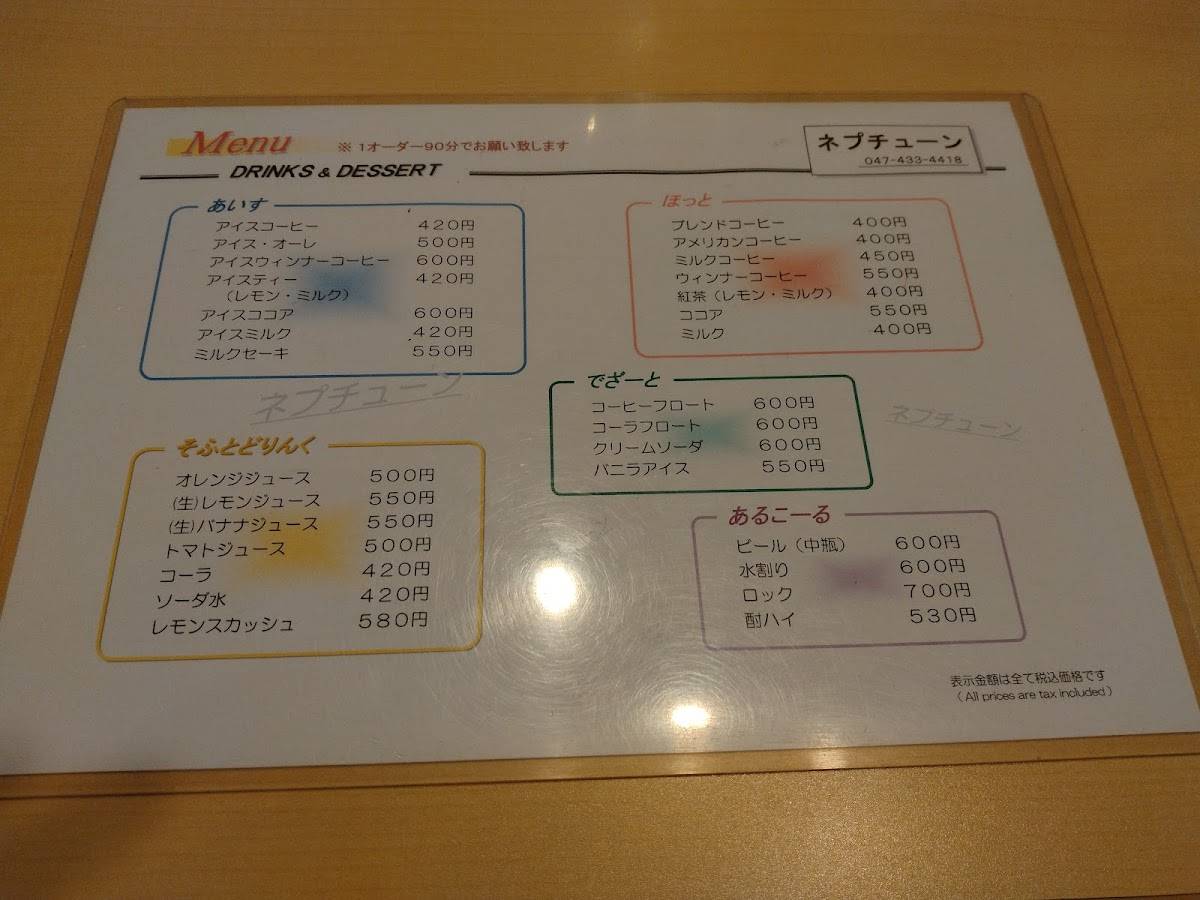 Menu ※ 1オーダー90分でお願い致します
DRINKS & DESSERT
ネプチューン
047-433-4418
あいす
アイスコーヒー 420円
アイス・オーレ 500円
アイスウィンナーコーヒー 600円
アイスティー 420円
（レモン・ミルク）
アイスココア 600円
アイスミルク 420円
ミルクセーキ 550円
ほっと
ブレンドコーヒー 400円
アメリカンコーヒー 400円
ミルクコーヒー 450円
ウィンナーコーヒー 550円
紅茶（レモン・ミルク） 400円
ココア 550円
ミルク 400円
ネプチューン
でざーと
コーヒーフロート 600円
コーラフロート 600円
クリームソーダ 600円
バニラアイス 550円
ネプチューン
そふとどりんく
オレンジジュース 500円
(生)レモンジュース 550円
(生)バナナジュース 550円
トマトジュース 500円
コーラ 420円
ソーダ水 420円
レモンスカッシュ 580円
あるこーる
ビール（中瓶） 600円
水割り 600円
ロック 700円
酎ハイ 530円
表示金額は全て税込価格です
（All prices are tax included）